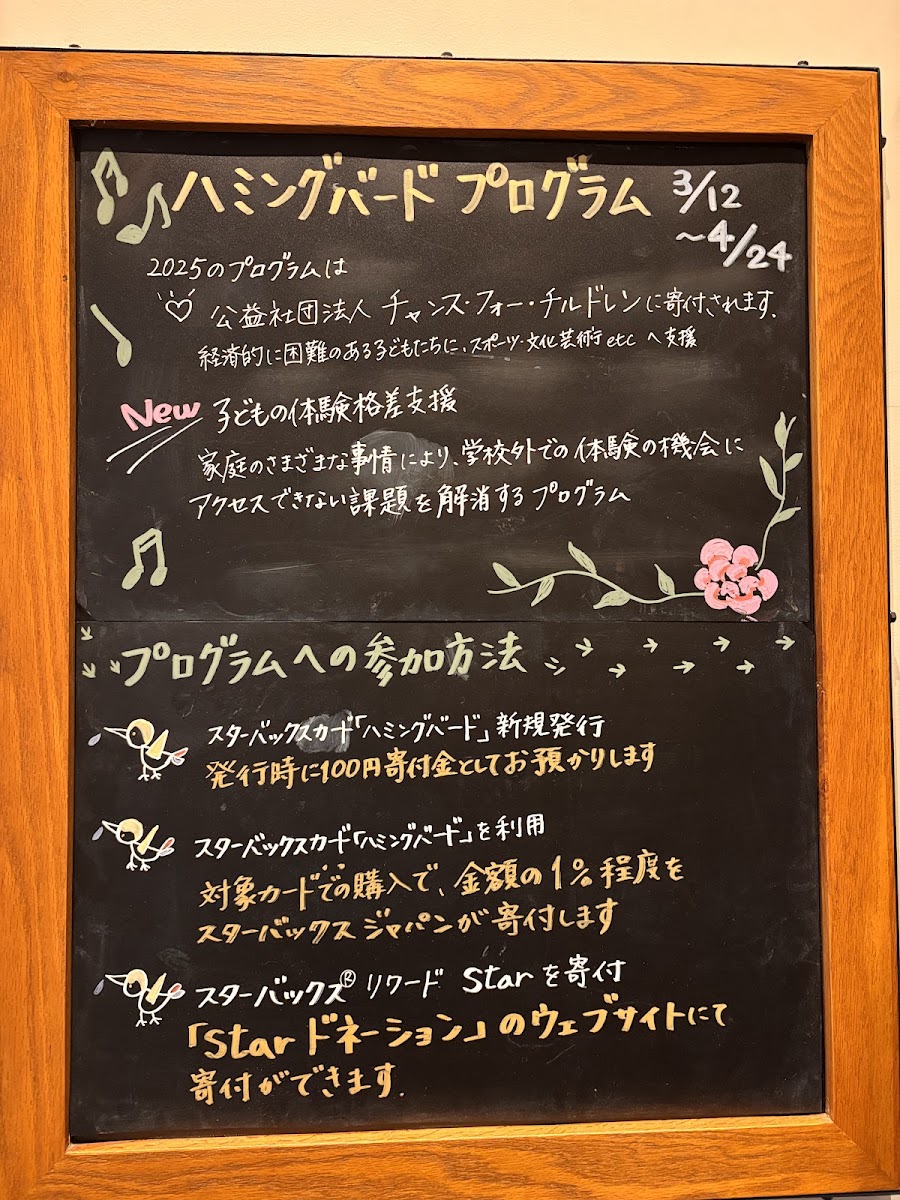 ハミングバード プログラム 3/12
～4/24
2025のプログラムは
公益社団法人 チャンス・フォー・チルドレンに寄付されます。
経済的に困難のある子どもたちに、スポーツ・文化芸術etc へ支援
New 子どもの体験格差支援
家庭のさまざまな事情により、学校外での体験の機会に
アクセスできない課題を解消するプログラム
プログラムへの参加方法
スターバックスカード「ハミングバード」新規発行
発行時に100円寄付金としてお預かりします
スターバックスカード「ハミングバード」を利用
対象カードでの購入で、金額の1%程度を
スターバックス ジャパンが寄付します
スターバックス® リワード Starを寄付
「Star ドネーション」のウェブサイトにて
寄付ができます.